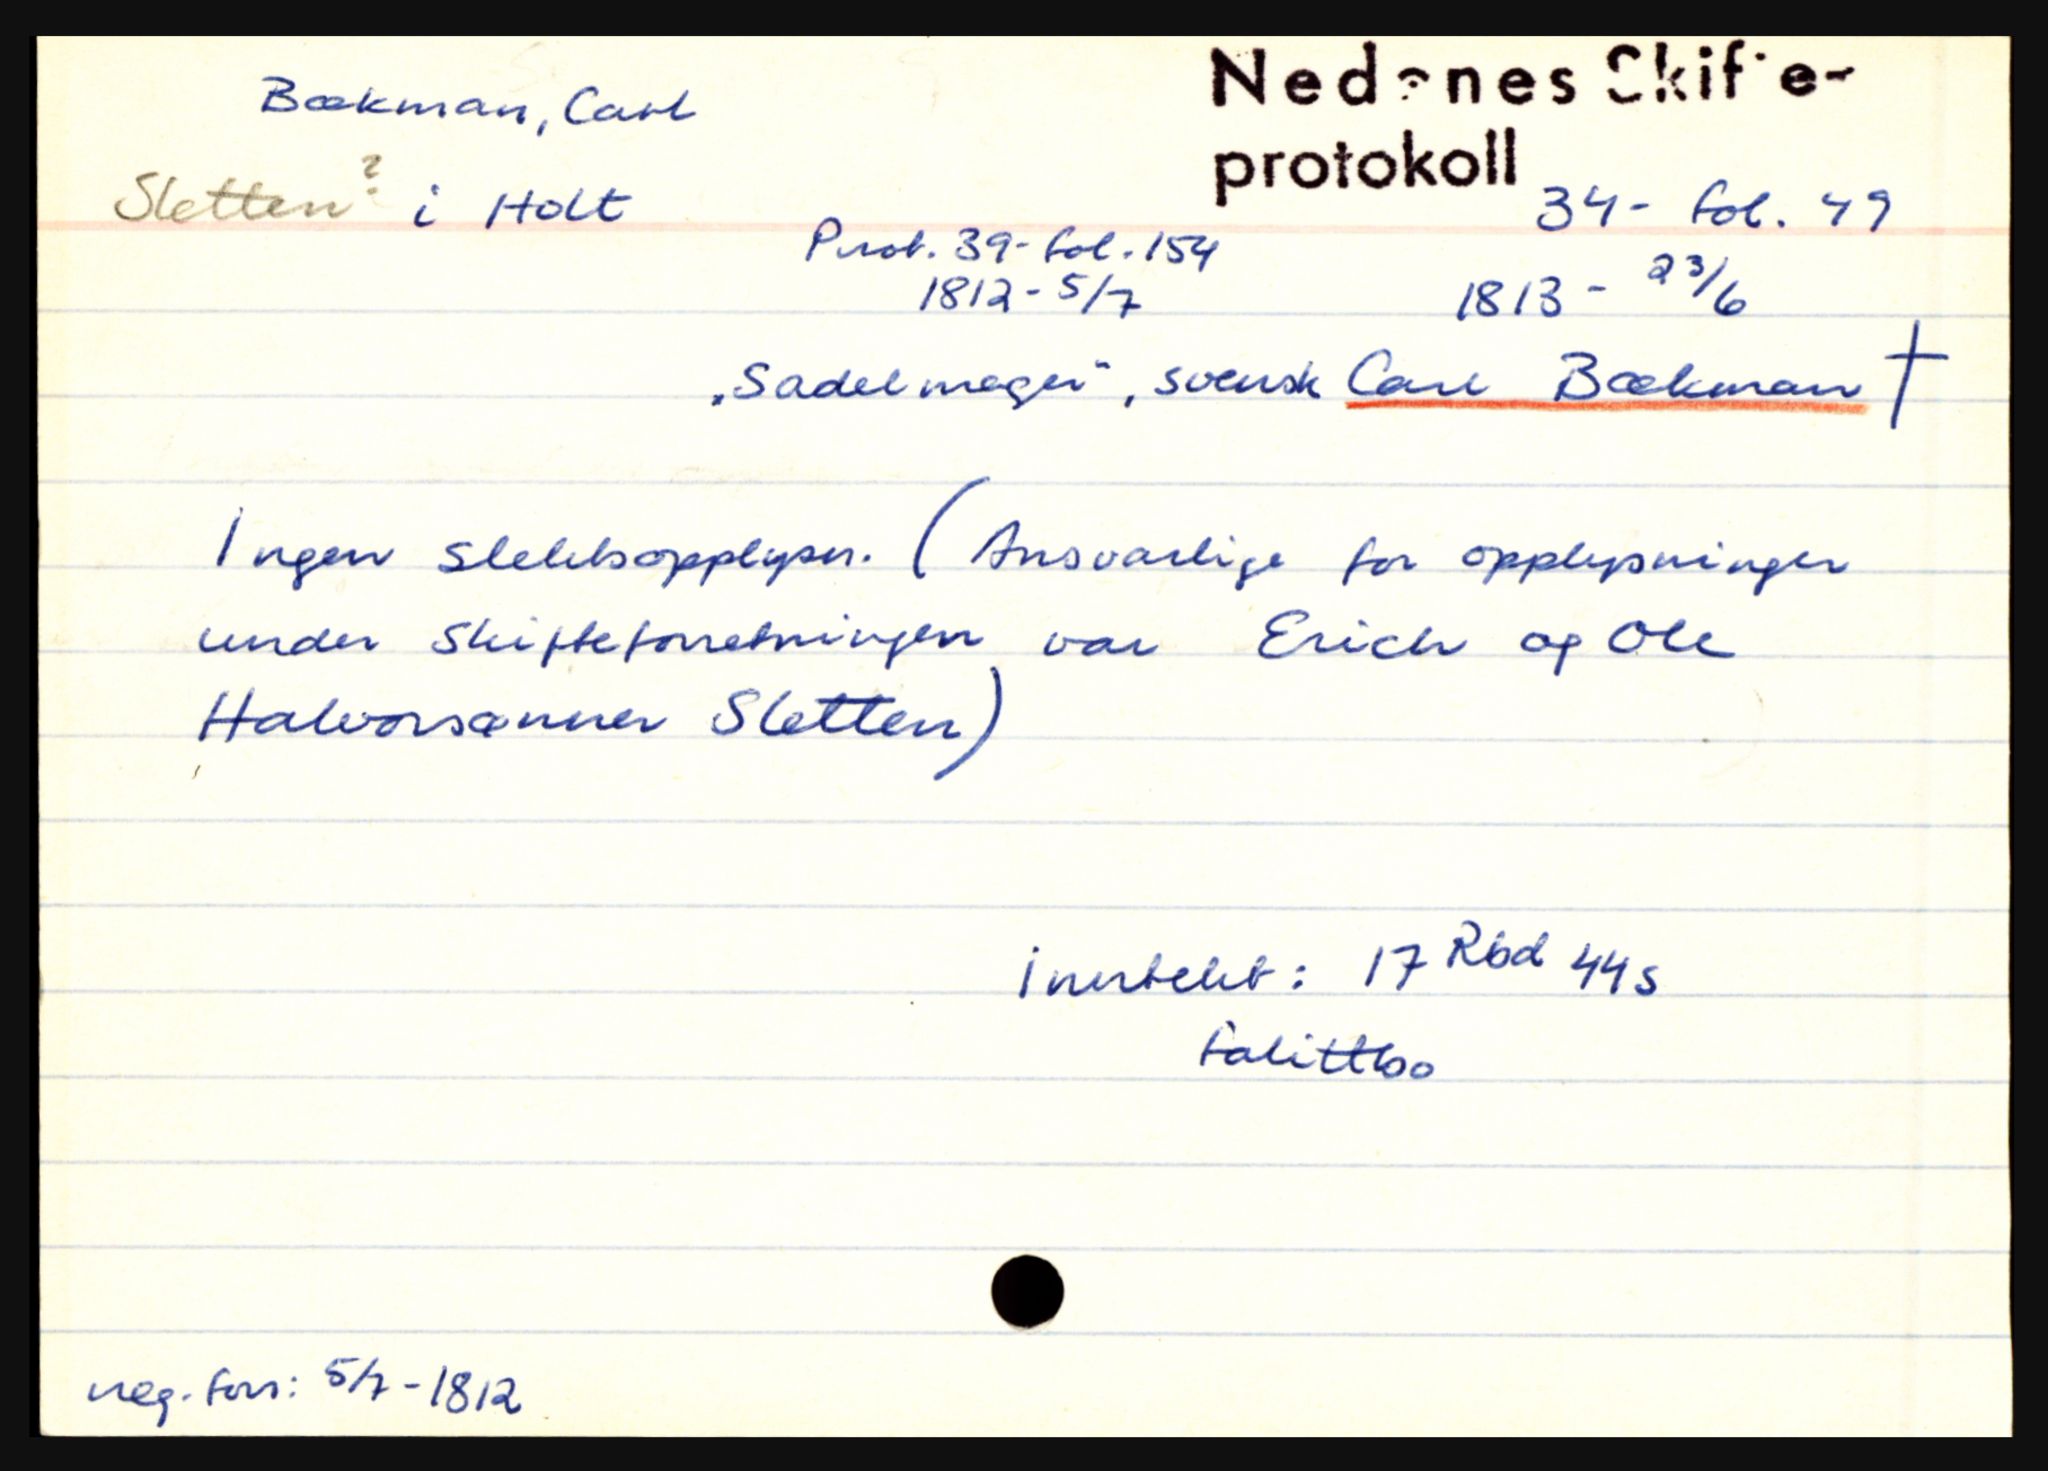 Bækman, Carl
Nedenes Skifte-
protokoll
Sletten? i Holt
34 - fol. 49
Prot. 39 - fol. 154
1812 - 5/7
1813 - 23/6
„Sadelmager", svensk Carl Bækman †
Ingen slektsopplysn. (Ansvarlige for opplysninger
under skifteforretningen var Erich og Ole
Halvorsønner Sletten)
inntekt: 17 Rbd 44s
fallittbo
reg. forr: 5/7 - 1812